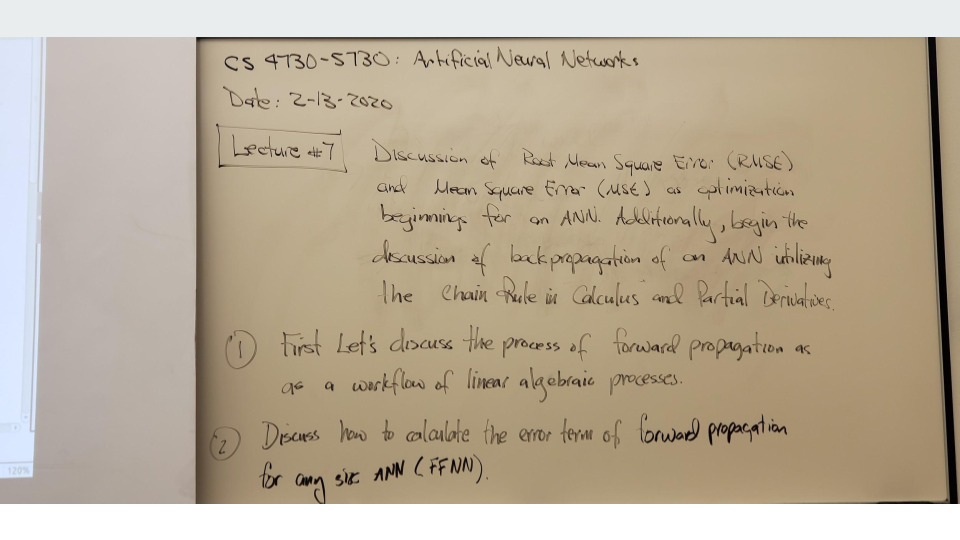 CS 4730-5730: Artificial Neural Networks
Date: 2-13-2020
Lecture #7
Discussion of Root Mean Square Error (RMSE)
and Mean Square Error (MSE) as optimization
beginnings for an ANN. Additionally, begin the
discussion of backpropagation of an ANN utilizing
the Chain Rule in Calculus and Partial Derivatives.
1 First Let's discuss the process of forward propagation as
as a workflow of linear algebraic processes.
2 Discuss how to calculate the error term of forward propagation
for any size ANN (FFNN).
120%